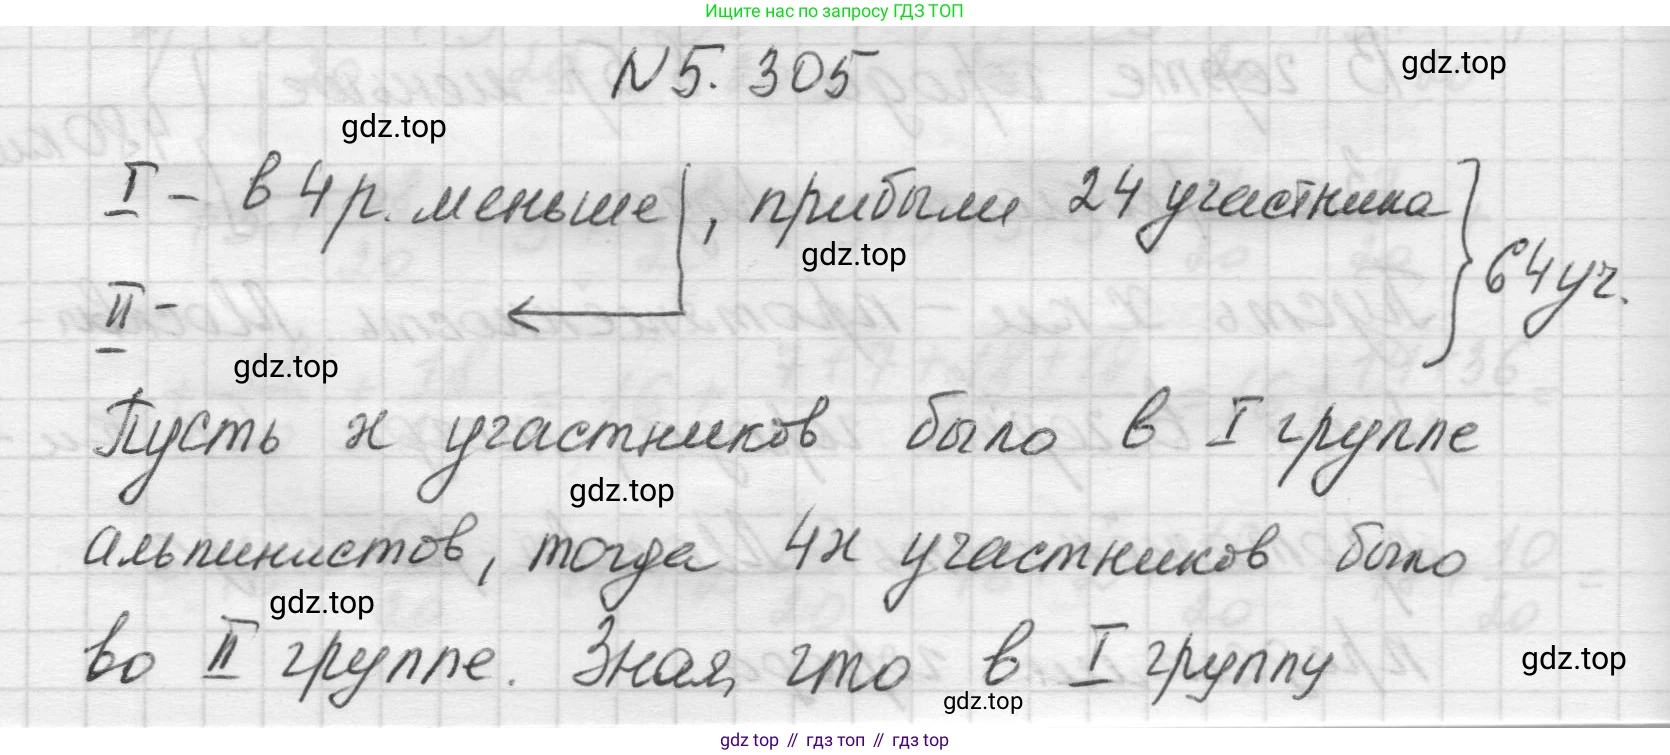 Ищите нас по запросу ГДЗ ТОП
N 5. 305
gdz.top
gdz.top
I - в 4 р. меньше, прибыли 24 участника
gdz.top
64 уч.
II -
gdz.top
Пусть x участников было в I группе
gdz.top
альпинистов, тогда 4x участников было
gdz.top
во II группе. Зная, что в I группу
gdz.top
gdz.top
gdz top // гдз топ // гдз top